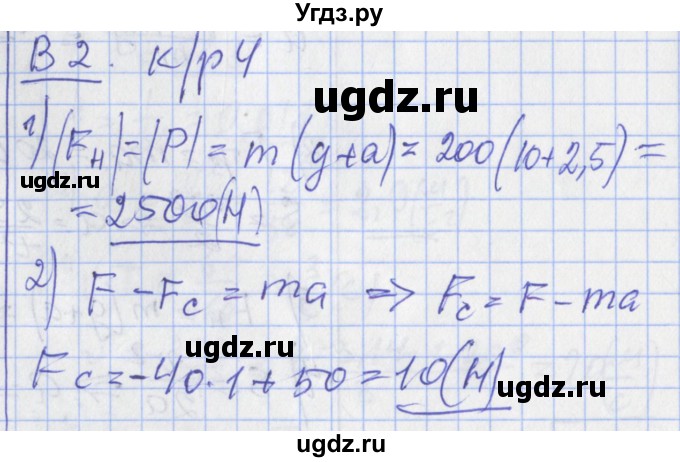 Угдз.ру
В 2. к/р 4
ugdz.ru
1) |Fн| = |P| = m(g+a) = 200(10+2,5) =
ugdz.ru
= 2500(Н)
2) F - Fc = ma => Fc = F - ma
ugdz.ru
ugdz.ru
Fc = -40·1 + 50 = 10(Н)
ugdz.ru
ugdz.ru